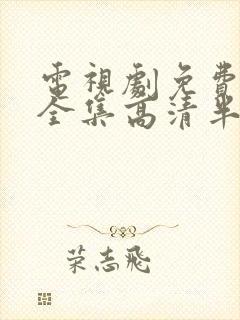 電視劇免費
全集高清半
荣志飛